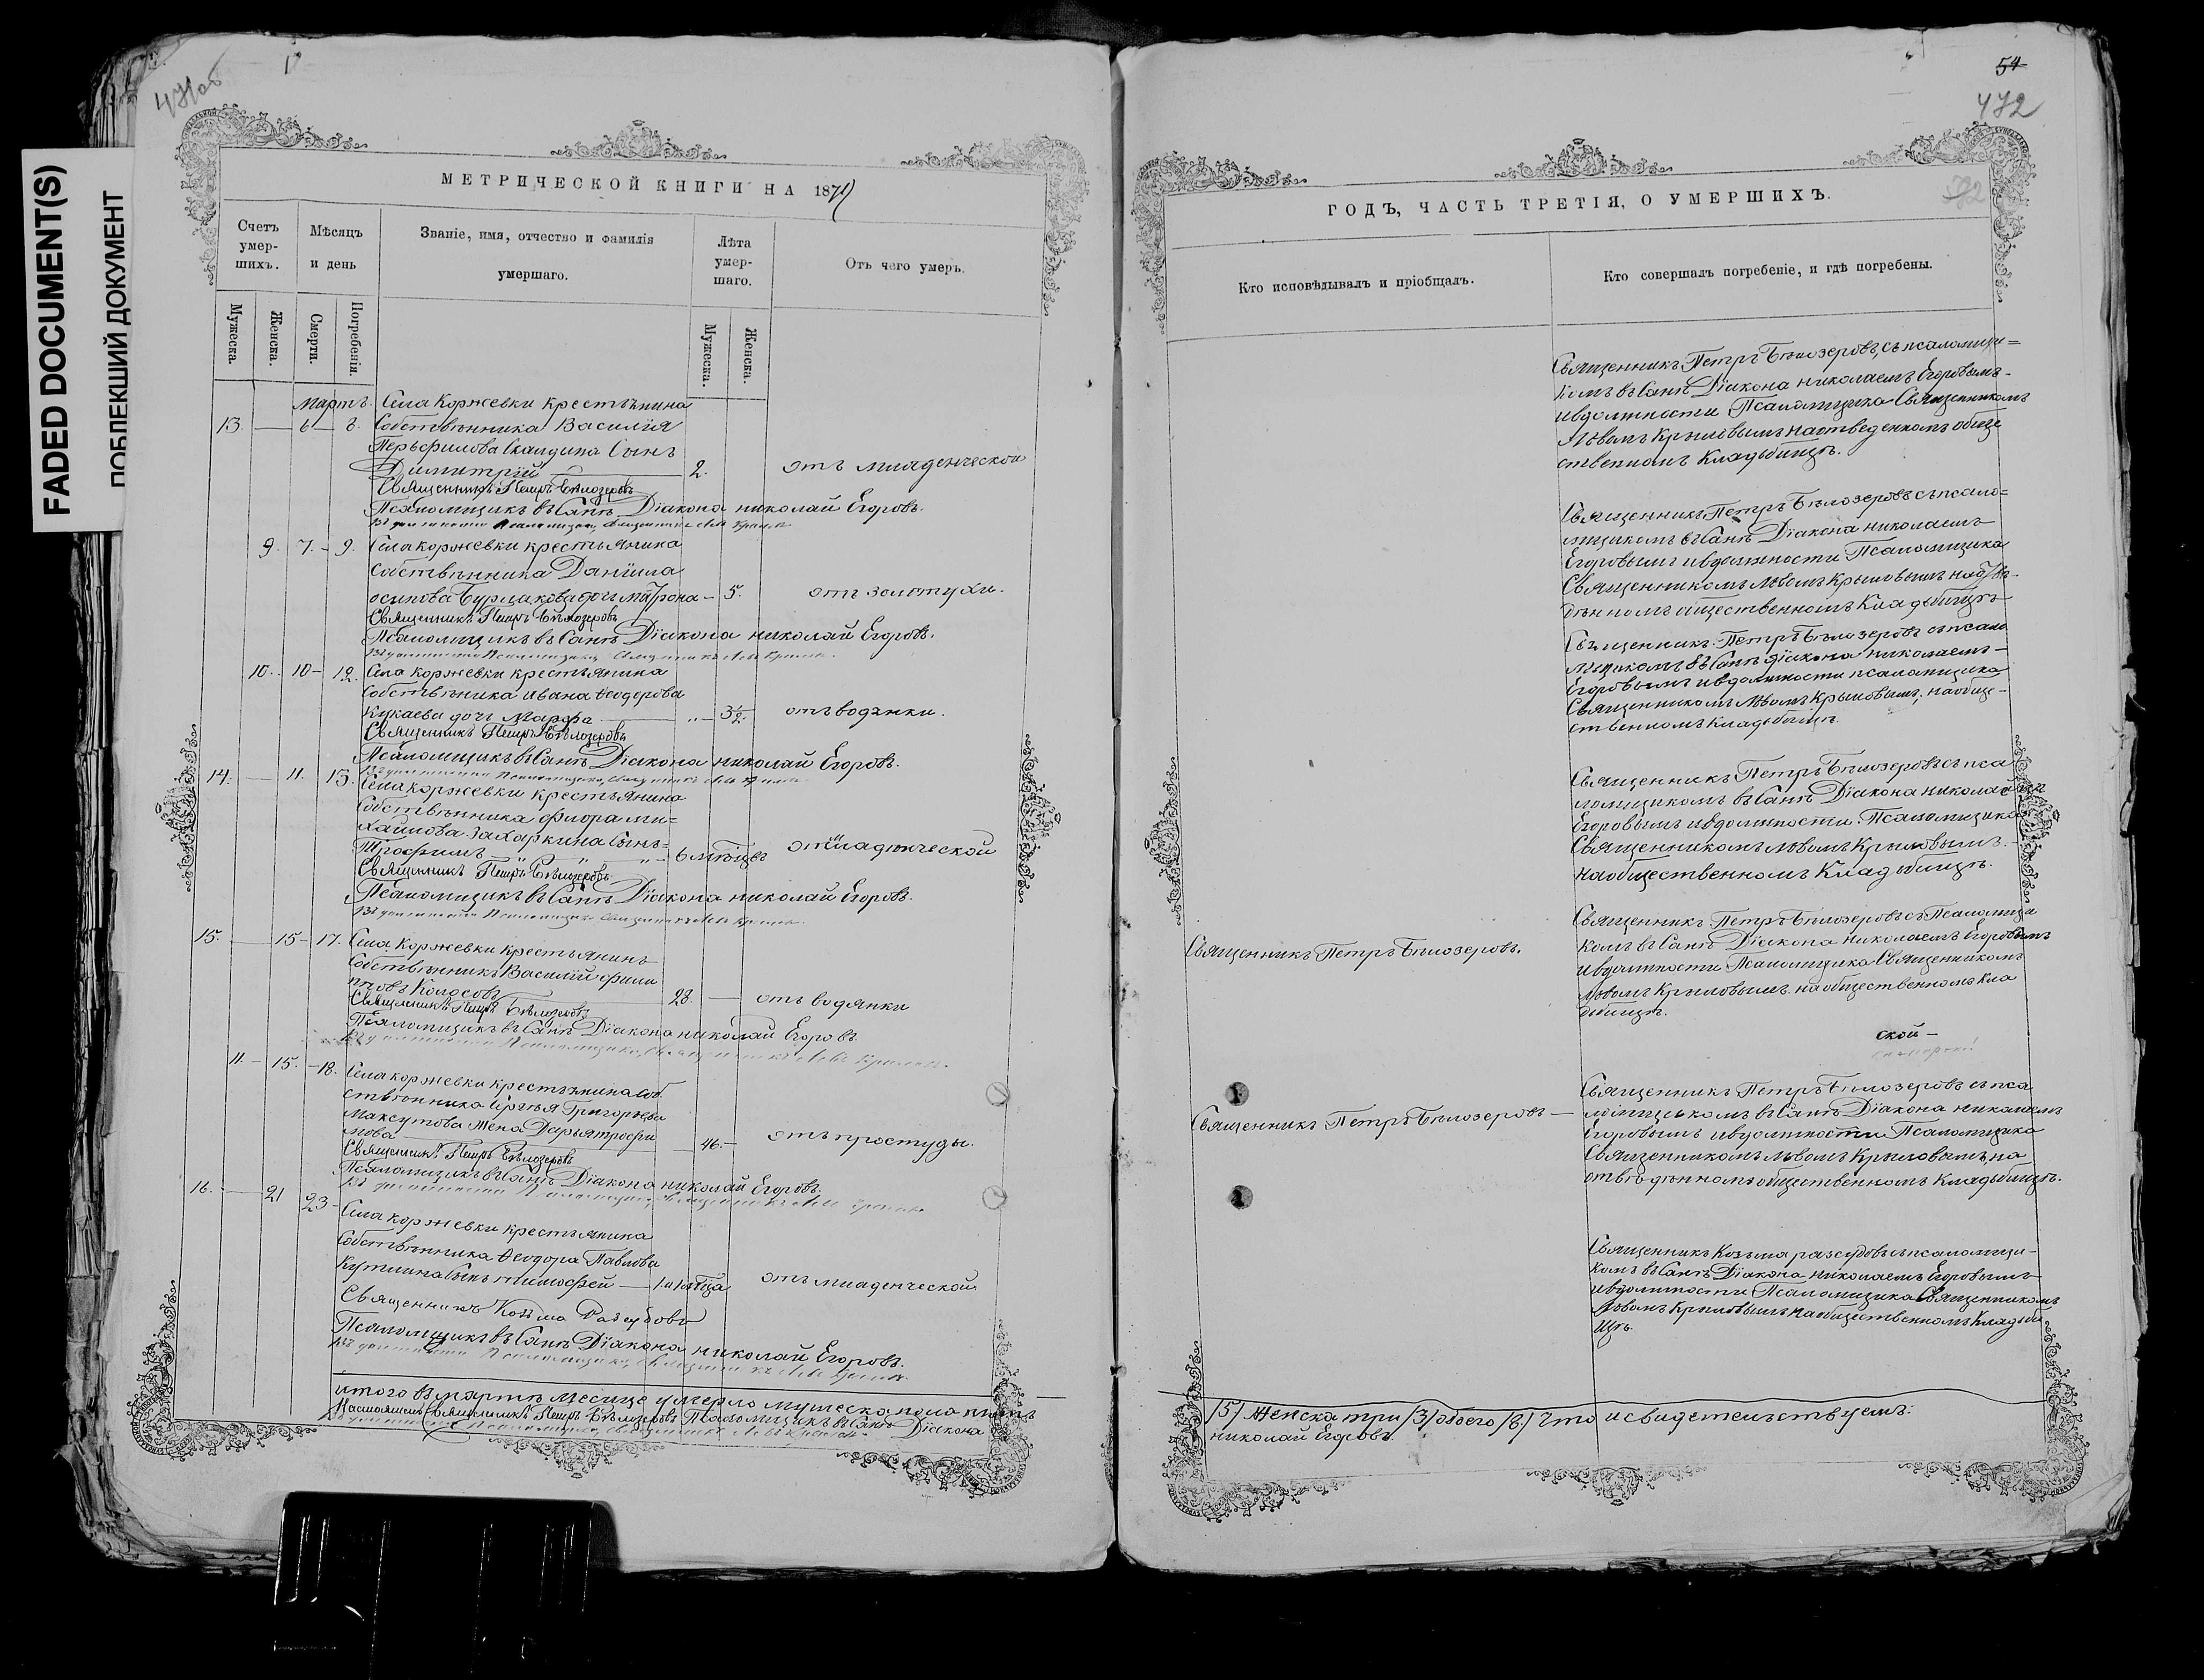 FADED DOCUMENT(S)
ПОБЛЕКШИЙ ДОКУМЕНТ
471об
МЕТРИЧЕСКОЙ КНИГИ НА 1871
Счетъ умер- шихъ.
Мѣсяцъ и день
Званіе, имя, отчество и фамилія умершаго.
Лѣта умер- шаго.
Отъ чего умеръ.
Мужеска.
Женска.
Смерти.
Погребенія.
Мужеска.
Женска.
Мартъ. Села Коржевки крестьянина
13. — 6 — 8. Собственника Василія
Перьфилова Скалдина Сынъ
Димитрій — 2. отъ младенческой
Священникъ Петръ Бѣлозеровъ
Псаломщикъ въ Санѣ Діакона николай Егоровъ.
9. 7. — 9. Села коржевки крестьянина
собственника Даніила
осипова Бурлакова дочь матрона — 5. отъ золотухи.
Священникъ Петръ Бѣлозеровъ
Псаломщикъ въ Санѣ Діакона николай Егоровъ.
10. 10 — 12. Села коржевки крестьянина
собственника ивана Ѳеодорова
Кукаева дочь Марфа — 3½ отъ водянки.
Священникъ Петръ Бѣлозеровъ
Псаломщикъ въ Санѣ Діакона николай Егоровъ.
14. — 11. 13. Села коржевки крестьянина
Собственника флора ми=
хайлова Захаркина Сынъ=
Трофимъ — 6 мѣсяцевъ от младенческой
Священникъ Петръ Бѣлозеровъ
Псаломщикъ въ Санѣ Діакона николай Егоровъ.
15. — 15 — 17. Села Коржевки крестьянинъ
Собственникъ Василій фили
пповъ Колосовъ — 28. — отъ водянки
Священникъ Петръ Бѣлозеровъ
Псаломщикъ въ Санѣ Діакона николай Егоровъ
11. — 15. — 18. Села коржевки крестьянина соб
ственника Сергѣя Григорьева
Максутова Жена Дарья трофи
мова — 46. — отъ простуды.
Священникъ Петръ Бѣлозеровъ
Псаломщикъ въ Санѣ Діакона николай Егоровъ.
16. — 21 23 — Села коржевки крестьянина
собственника Ѳеодора Павлова
сынъ тимофей — отъ младенческой
Священникъ Козьма
Псаломщикъ въ Санѣ Діакона николай Егоровъ.
итого въ мартѣ месяце умерло мужеска пола пять
Священникъ Петръ Бѣлозеровъ Псаломщикъ въ Санѣ Діакона
54
472
ГОДЪ, ЧАСТЬ ТРЕТІЯ, О УМЕРШИХЪ.
Кто исповѣдывалъ и пріобщалъ.
Кто совершалъ погребеніе, и гдѣ погребены.
Священникъ Петръ Бѣлозеровъ, съ псаломщи=
комъ въ Санѣ Діакона николаемъ Егоровымъ-
и въ должности Псаломщика Священникомъ
Львомъ Крыловымъ на отведенномъ обще
ственномъ Кладьбищѣ.
Священникъ Петръ Бѣлозеровъ съ псало=
мщикомъ въ Санѣ Діакона николаемъ
Егоровымъ и въ должности Псаломщика
Священникомъ Львомъ Крыловымъ на отве-
дѣнномъ общественномъ Кладьбищѣ
Священникъ Петръ Бѣлозеровъ съ псало
мщикомъ въ Санѣ діакона николаемъ-
Егоровымъ и въ должности псаломщика
Священникомъ Львомъ Крыловымъ, на обще-
ственномъ кладьбищѣ.
Священникъ Петръ Бѣлозеровъ съ пса
ломщикомъ въ Санѣ Діакона николаемъ
Егоровымъ и въ должности Псаломщика
Священникомъ Львомъ Крыловымъ-
на общественномъ Кладьбищѣ.
Священникъ Петръ Бѣлозеровъ.
Священникъ Петръ Бѣлозеровъ съ Псаломщи
комъ въ Санѣ Діакона николаемъ Егоровымъ
и въ должности Псаломщика Священникомъ
Львомъ Крыловымъ на общественномъ Кла
дьбищѣ.
ской —
Священникъ Петръ Бѣлозеровъ —
Священникъ Петръ Бѣлозеровъ съ пса
ломщикомъ въ Санѣ Діакона николаемъ
Егоровымъ и въ должности Псаломщика
Священникомъ Львомъ Крыловымъ, на
отведѣнномъ общественномъ Кладьбищѣ.
Священникъ Козьма съ псаломщи-
комъ въ Санѣ Діакона николаемъ Егоровымъ
и въ должности Псаломщика Священникомъ
Львомъ Крыловымъ на общественномъ Кладьби
щѣ.
/5/ Женска три /3/ обоего /8/ Что и свидетельствуемъ:
николай Егоровъ.